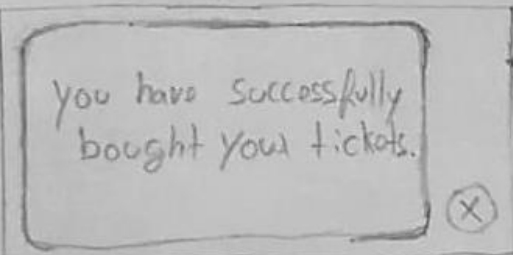 you have successfully
bought your tickets.
X